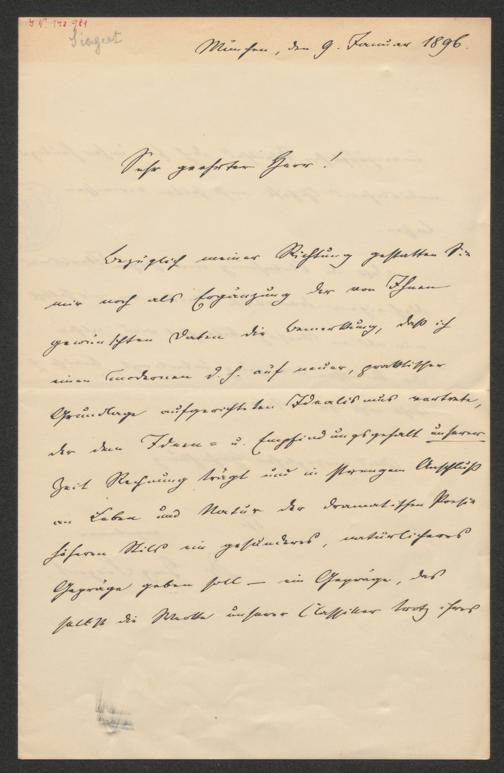 J.N. 142.981
Siegert
München, den 9. Januar 1896.
Sehr geehrter Herr!
Bezüglich meiner Richtung gestatten Sie
mir noch als Ergänzung der von Ihnen
gewünschten Daten die Bemerkung, daß ich
einen modernen d. h. auf neuer, praktischer
Grundlage aufgerichteten Idealismus vertrete,
der dem Ideen- u. Empfindungsgehalt unserer
Zeit Rechnung trägt und in strengem Anschluß
an Leben und Natur der dramatischen Poesie
höheren Stils ein gesünderes, natürlicheres
Gepräge geben soll — ein Gepräge, das
selbst die Werke unserer Classiker trotz ihres